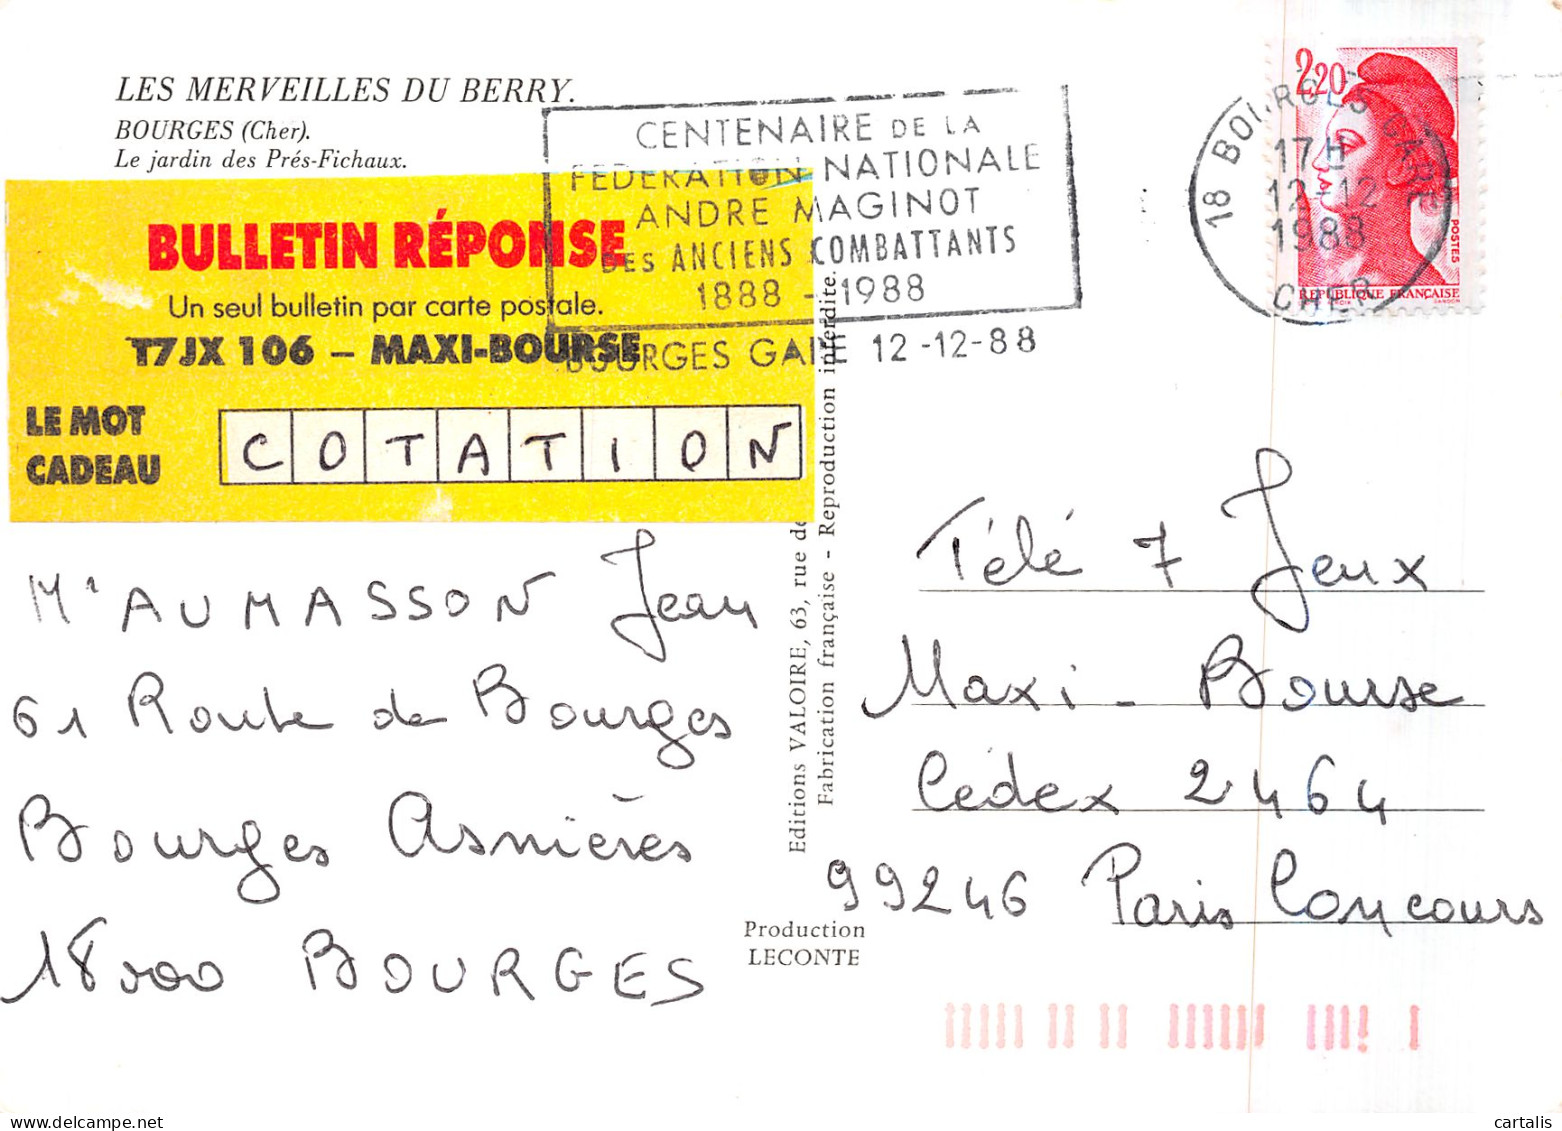 LES MERVEILLES DU BERRY.
BOURGES (Cher).
Le jardin des Prés-Fichaux.
CENTENAIRE DE LA
FEDERATION NATIONALE
ANDRE MAGINOT
DES ANCIENS COMBATTANTS
1888 - 1988
BOURGES GARE 12-12-88
2,20
18 BOURGES GARE
17H
12-12
1988
CHER
POSTES
REPUBLIQUE FRANÇAISE
BULLETIN RÉPONSE
Un seul bulletin par carte postale.
T7JX 106 – MAXI-BOURSE
LE MOT
CADEAU
COTATION
Mr AUMASSON Jean
61 Route de Bourges
Bourges Asnières
18000 BOURGES
Editions VALOIRE, 63, rue de
Fabrication française - Reproduction interdite.
Production
LECONTE
Télé 7 Jeux
Maxi - Bourse
Cédex 2464
99246 Paris Concours
cartalis